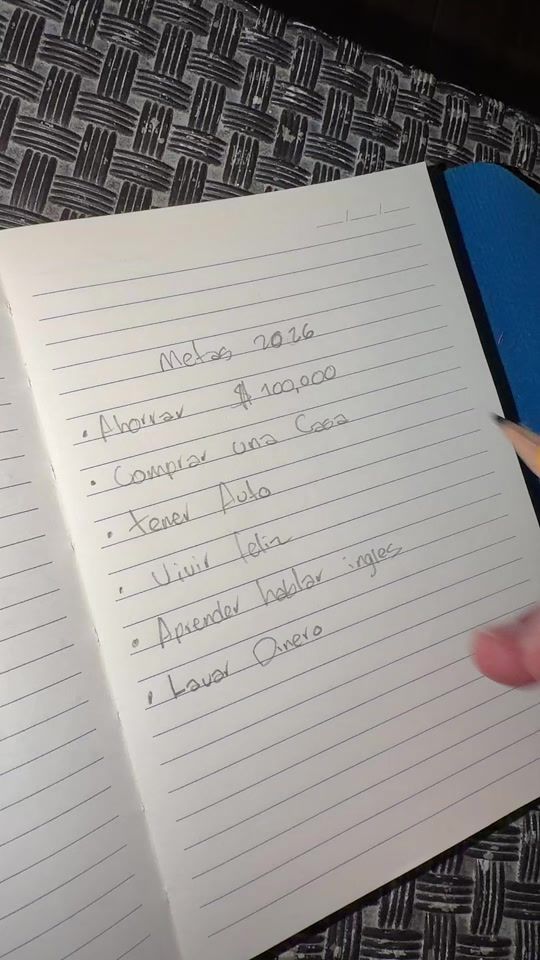 __/__/__
Metas 2026
• Ahorrar $100,000
• Comprar una Casa
• tener Auto
• Vivir feliz
• Aprender hablar ingles
• Lavar Dinero